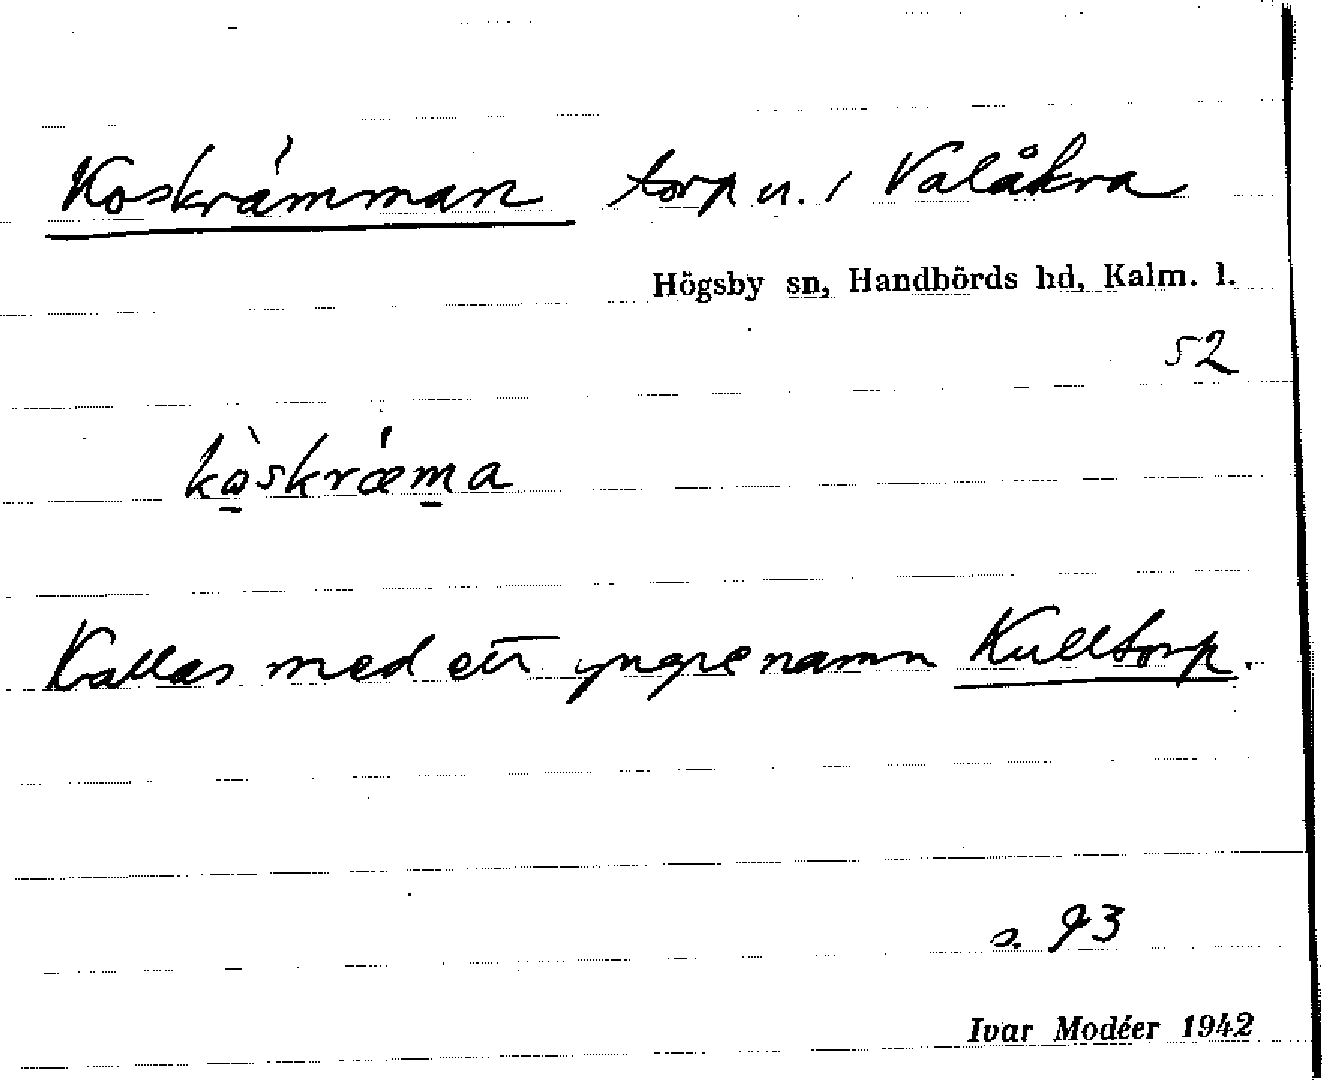 Koskrämman torp u. / Valåkra
Högsby sn, Handbörds hd, Kalm. l.
52
kòskrǽma
Kallas med ett yngre namn Kulltorp.
s. 93
Ivar Modéer 1942